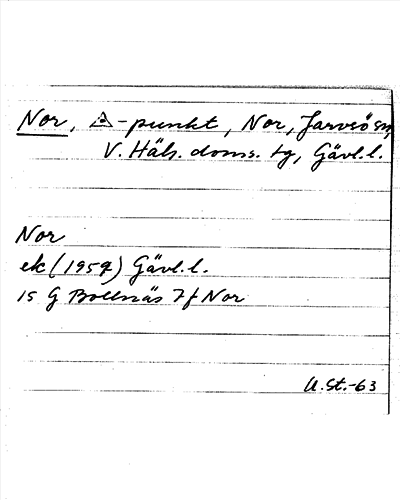 Nor, △-punkt, Nor, Jarvsö sn,
V. Häls. doms. tg, Gävl. l.
Nor
ek (1959) Gävl. l.
15 G Bollnäs 7f Nor
U. St. -63